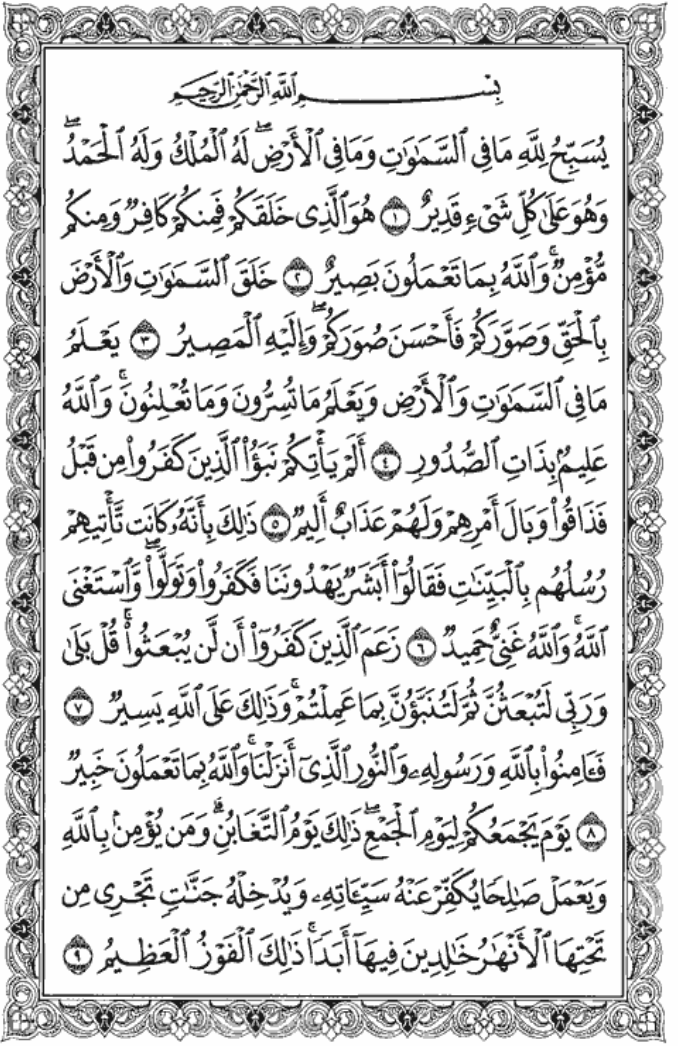 بِسْمِ ٱللَّهِ ٱلرَّحْمَٰنِ ٱلرَّحِيمِ
يُسَبِّحُ لِلَّهِ مَا فِى ٱلسَّمَٰوَٰتِ وَمَا فِى ٱلْأَرْضِ ۖ لَهُ ٱلْمُلْكُ وَلَهُ ٱلْحَمْدُ ۖ
وَهُوَ عَلَىٰ كُلِّ شَىْءٍ قَدِيرٌ ١ هُوَ ٱلَّذِى خَلَقَكُمْ فَمِنكُمْ كَافِرٌ وَمِنكُم
مُّؤْمِنٌ ۚ وَٱللَّهُ بِمَا تَعْمَلُونَ بَصِيرٌ ٢ خَلَقَ ٱلسَّمَٰوَٰتِ وَٱلْأَرْضَ
بِٱلْحَقِّ وَصَوَّرَكُمْ فَأَحْسَنَ صُوَرَكُمْ ۖ وَإِلَيْهِ ٱلْمَصِيرُ ٣ يَعْلَمُ
مَا فِى ٱلسَّمَٰوَٰتِ وَٱلْأَرْضِ وَيَعْلَمُ مَا تُسِرُّونَ وَمَا تُعْلِنُونَ ۚ وَٱللَّهُ
عَلِيمٌۢ بِذَاتِ ٱلصُّدُورِ ٤ أَلَمْ يَأْتِكُمْ نَبَؤُا۟ ٱلَّذِينَ كَفَرُوا۟ مِن قَبْلُ
فَذَاقُوا۟ وَبَالَ أَمْرِهِمْ وَلَهُمْ عَذَابٌ أَلِيمٌ ٥ ذَٰلِكَ بِأَنَّهُۥ كَانَت تَّأْتِيهِمْ
رُسُلُهُم بِٱلْبَيِّنَٰتِ فَقَالُوٓا۟ أَبَشَرٌ يَهْدُونَنَا فَكَفَرُوا۟ وَتَوَلَّوا۟ ۖ وَّٱسْتَغْنَى
ٱللَّهُ ۚ وَٱللَّهُ غَنِىٌّ حَمِيدٌ ٦ زَعَمَ ٱلَّذِينَ كَفَرُوٓا۟ أَن لَّن يُبْعَثُوا۟ ۚ قُلْ بَلَىٰ
وَرَبِّى لَتُبْعَثُنَّ ثُمَّ لَتُنَبَّؤُنَّ بِمَا عَمِلْتُمْ ۚ وَذَٰلِكَ عَلَى ٱللَّهِ يَسِيرٌ ٧
فَـَٔامِنُوا۟ بِٱللَّهِ وَرَسُولِهِۦ وَٱلنُّورِ ٱلَّذِىٓ أَنزَلْنَا ۚ وَٱللَّهُ بِمَا تَعْمَلُونَ خَبِيرٌ
٨ يَوْمَ يَجْمَعُكُمْ لِيَوْمِ ٱلْجَمْعِ ۖ ذَٰلِكَ يَوْمُ ٱلتَّغَابُنِ ۗ وَمَن يُؤْمِنۢ بِٱللَّهِ
وَيَعْمَلْ صَٰلِحًا يُكَفِّرْ عَنْهُ سَيِّـَٔاتِهِۦ وَيُدْخِلْهُ جَنَّٰتٍ تَجْرِى مِن
تَحْتِهَا ٱلْأَنْهَٰرُ خَٰلِدِينَ فِيهَآ أَبَدًا ۚ ذَٰلِكَ ٱلْفَوْزُ ٱلْعَظِيمُ ٩